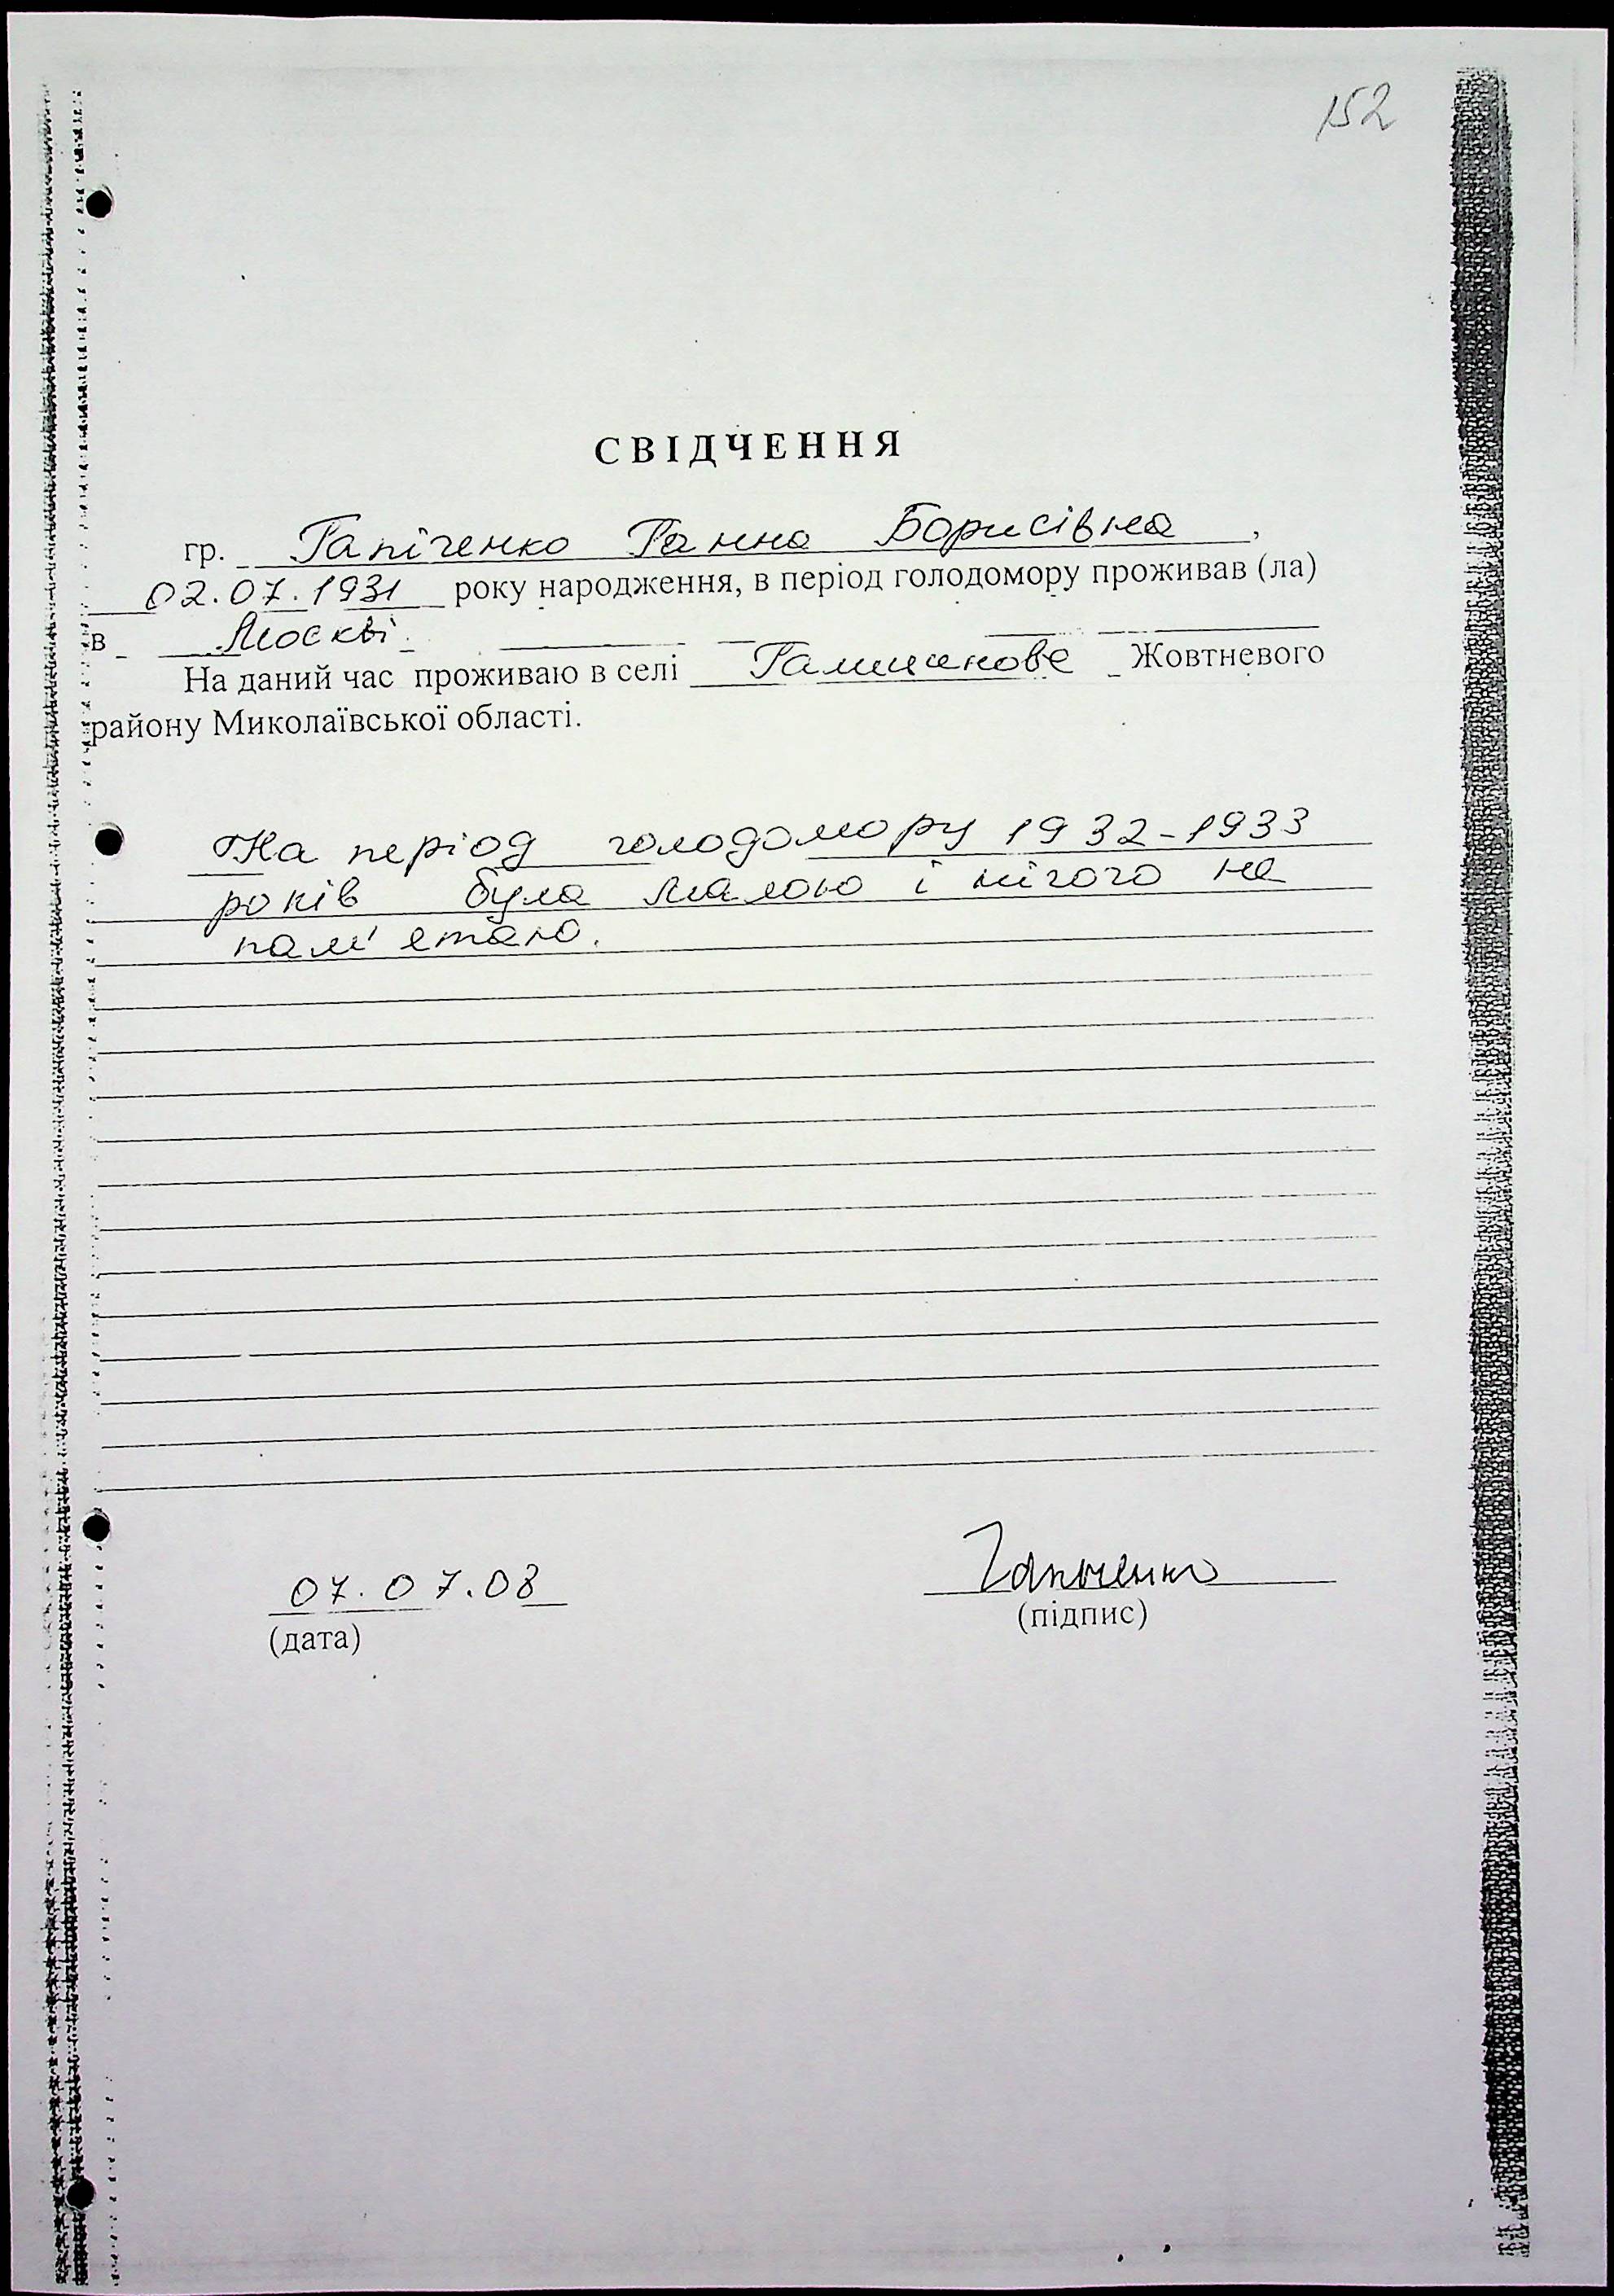 152
СВІДЧЕННЯ
гр. Гапіченко Ганна Борисівна,
02.07.1931 року народження, в період голодомору проживав (ла)
в Москві.
На даний час проживаю в селі Галицинове Жовтневого
району Миколаївської області.
На період голодомору 1932-1933
років була малою і нічого не
пам'ятаю.
07.07.08
(дата)
(підпис)